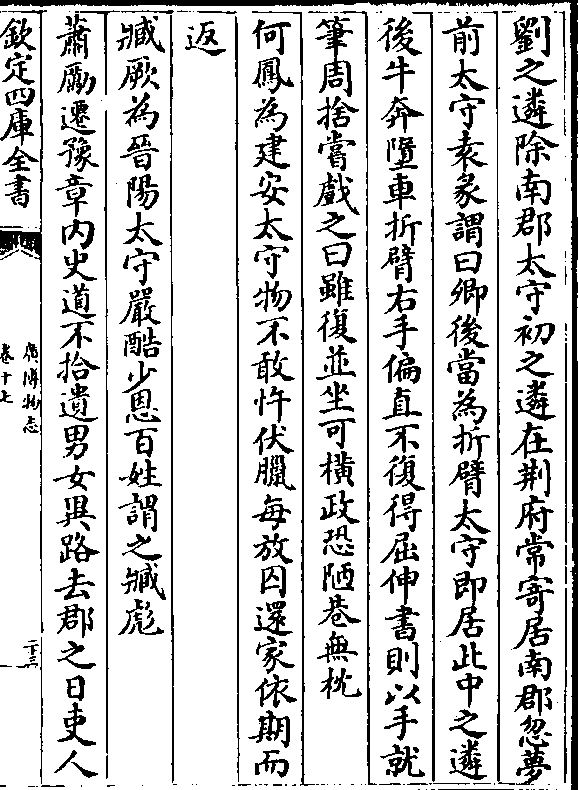 劉之遴除南郡太守初之遴在荆府常寄居南郡忽夢
前太守袁彖謂曰卿後當為折臂太守即居此中之遴
後牛奔墮車折臂右手偏直不復得屈伸書則以手就
筆周捨嘗戲之曰雖復並坐可橫政恐陋巷無枕
何鳳為建安太守物不敢忤伏臘每放囚還家依期而
返
臧厥為晉陽太守嚴酷少恩百姓謂之臧彪
蕭勵遷豫章内史道不拾遺男女異路去郡之日吏人
欽定四庫全書
廣博物志
卷十七
二十三